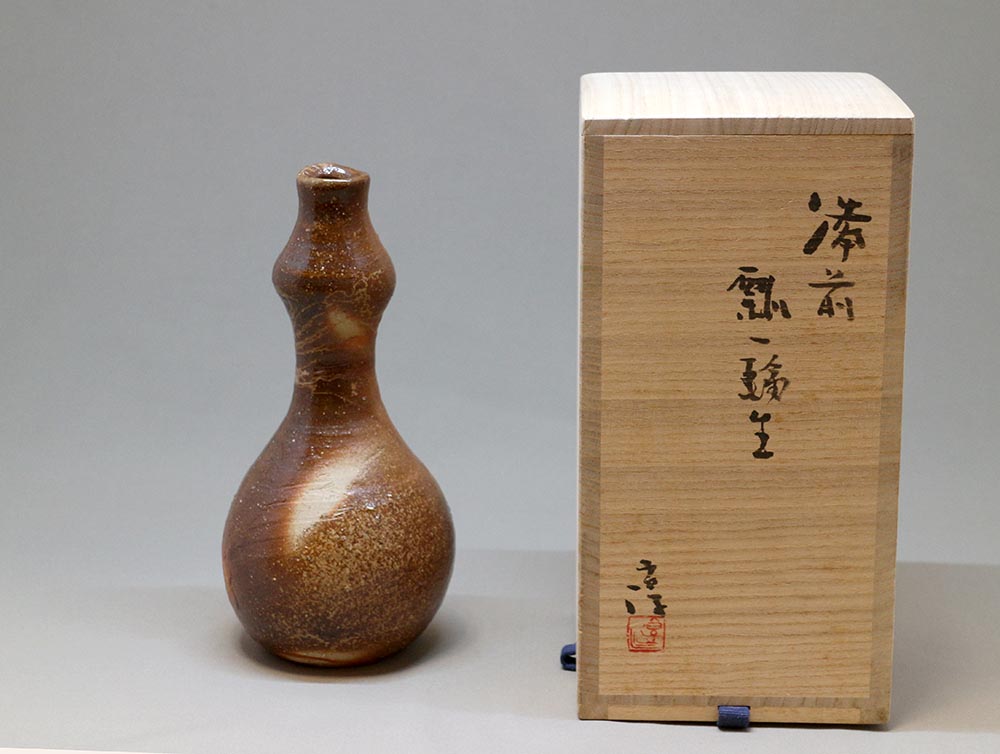 備前
瓢一輪生